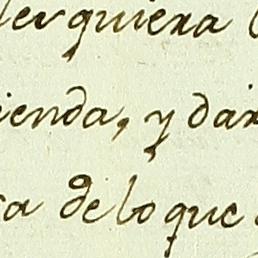 quiera
ienda, y dar
a de lo que